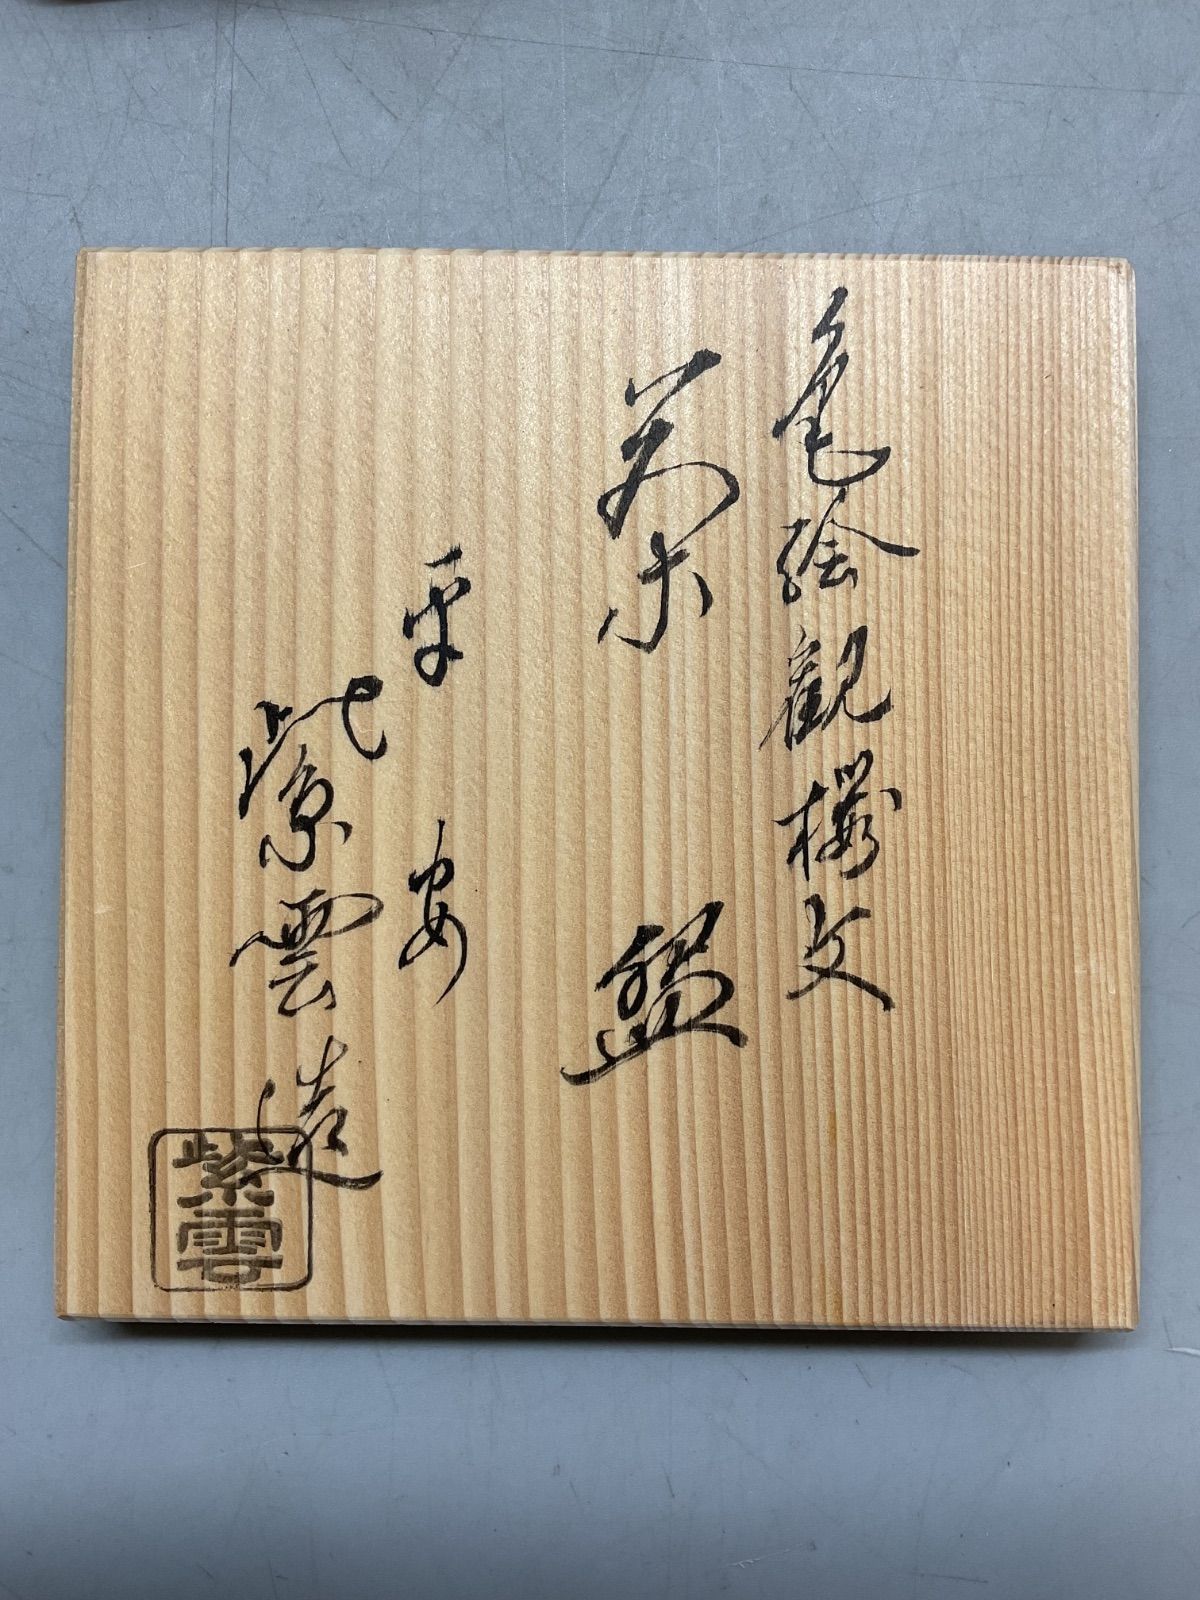 色絵観桜文
茶盌
平安
紫雲造
紫雲